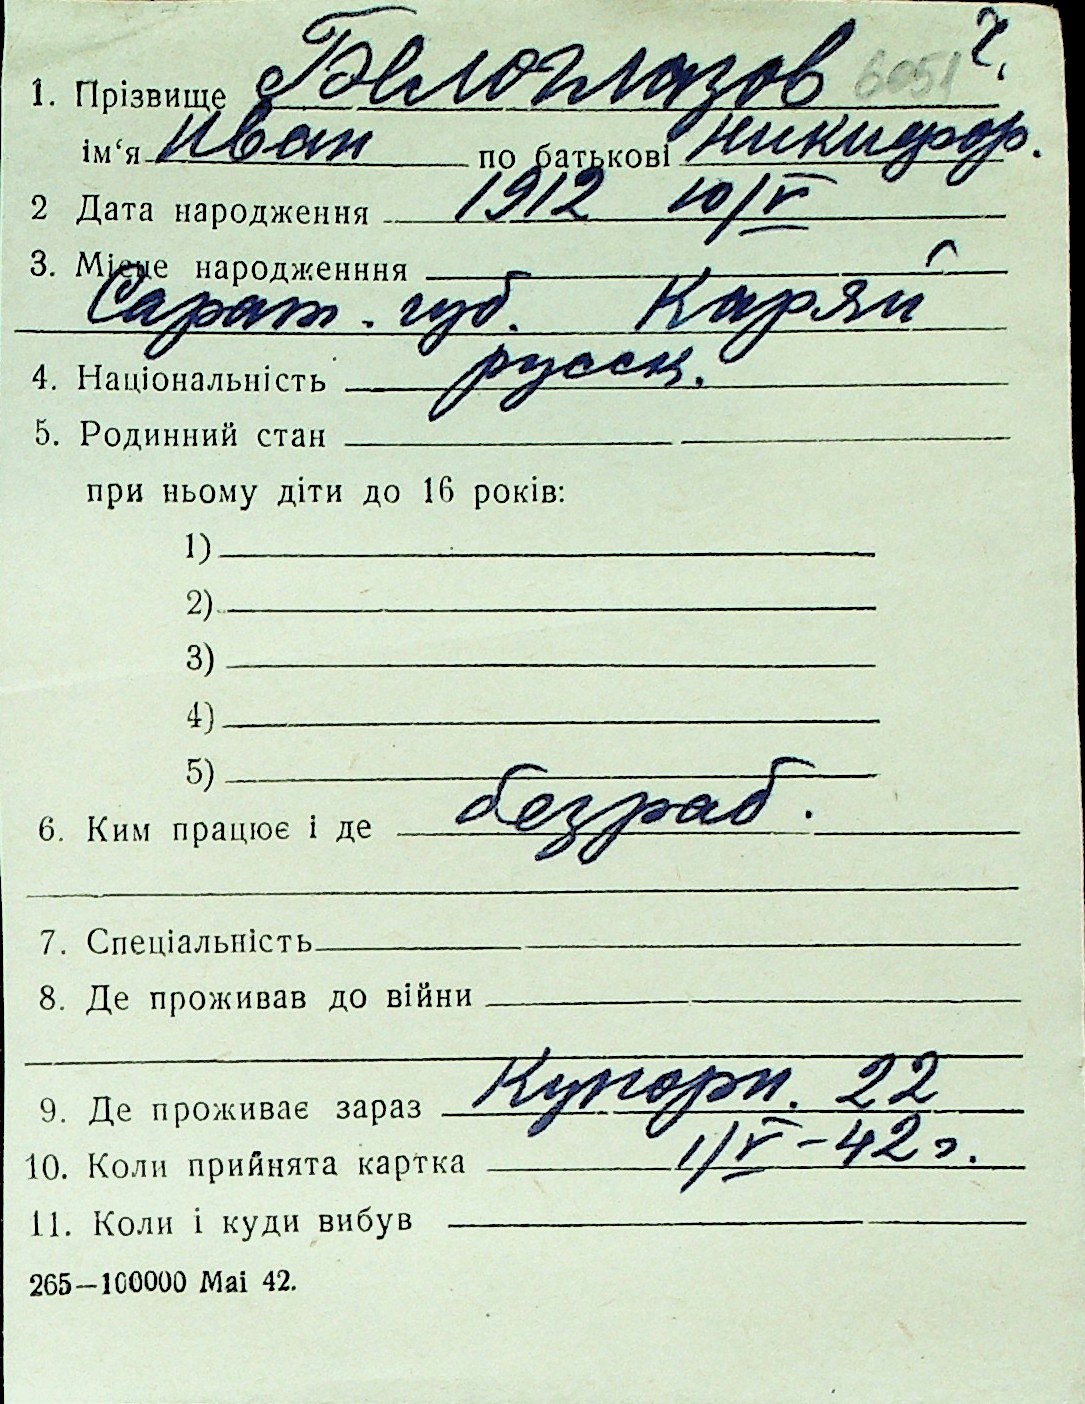 ч.
1. Прізвище Белоглазов 6051
ім‘я Иван по батькові Никифор.
2 Дата народження 1912 10/V
3. Місце народженння
Сарат. губ. Каряй
4. Національність русск.
5. Родинний стан
при ньому діти до 16 років:
1)
2)
3)
4)
5)
6. Ким працює і де безраб.
7. Спеціальність
8. Де проживав до війни
9. Де проживає зараз Купорн. 22
10. Коли прийнята картка 1/V-42 г.
11. Коли і куди вибув
265—100000 Mai 42.